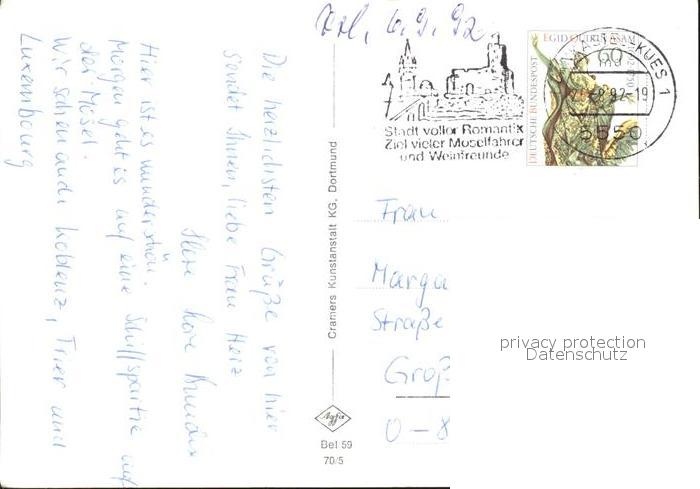 Erl. 6.9.92
Die herzlichsten Grüße von hier
sendet Ihnen, liebe Frau Herz
Ihre
Hier ist es wunderschön.
Morgen geht es auf eine Schiffspartie auf
der Mosel.
Wir sehen auch Koblenz, Trier und
Luxembourg
Cramers Kunstanstalt KG, Dortmund
Agfa
Bet 59
70/5
Stadt voller Romantik
Ziel vieler Moselfahrer
und Weinfreunde
EGID QUIRIN ASAM
60
DEUTSCHE BUNDESPOST
KUES 1
92-19
5550
Frau
Marga
Straße
Groß
O-8
privacy protection
Datenschutz